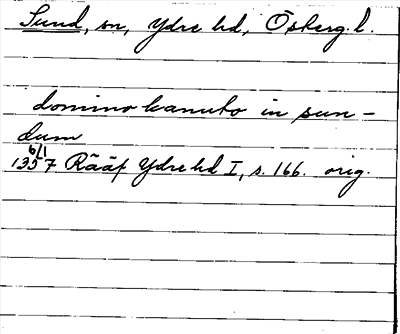 Sund, sn, Ydre hd, Österg. l.
domino kanuto in sun-
dum
6/1
1357 Rääf Ydre hd I, s. 166. orig.